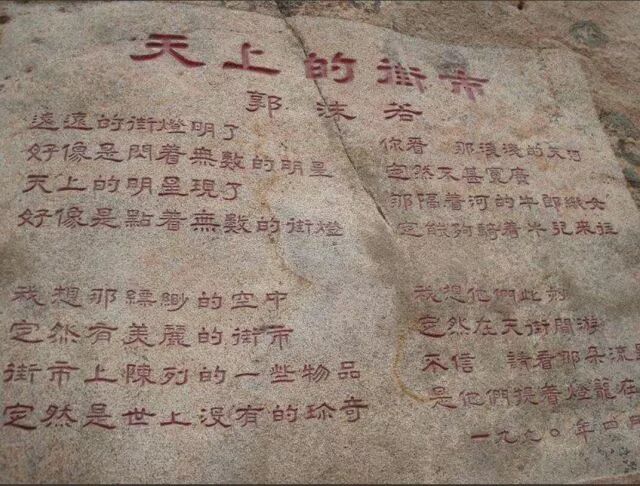 天上的街市
郭沫若
遠遠的街燈明了
好像是閃着無數的明星
天上的明星現了
好像是點着無數的街燈
我想那縹緲的空中
定然有美麗的街市
街市上陳列的一些物品
定然是世上沒有的珍奇
你看 那淺淺的天河
定然不甚寬廣
那隔着河的牛郎織女
定能夠騎着牛兒來往
我想他們此刻
定然在天街閒游
不信 請看那朵流星
是他們提着燈籠在
一九九〇年四月